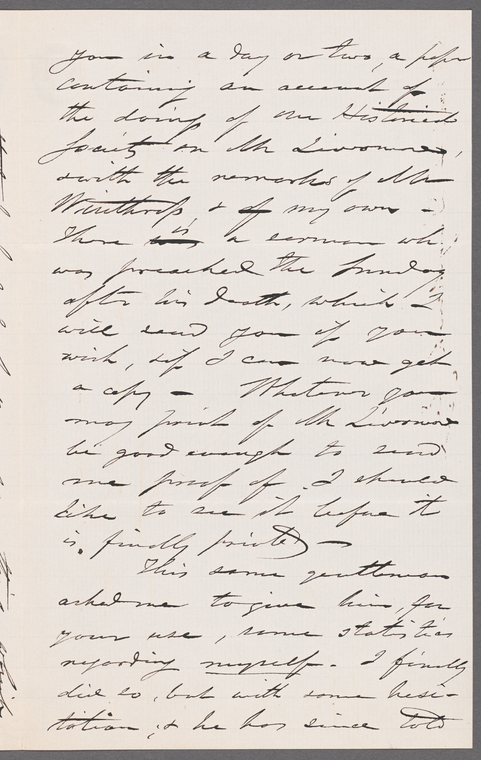 you in a day or two, a paper
containing an account of
the doings of our Historical
Society on Mr Livermore,
& with the remarks of Mr
Winthrop, & of my own -
There is a sermon wh.
was preached the Sunday
after his death, which I
will send you if you
wish, & if I can now get
a copy - Whatever you
may print of Mr Livermore
be good enough to send
me proof of. I should
like to see it before it
is finally printed -
This same gentleman
asked me to give him, for
your use, some statistics
regarding myself. I finally
did so, but with some hesi-
tation, & he has since told